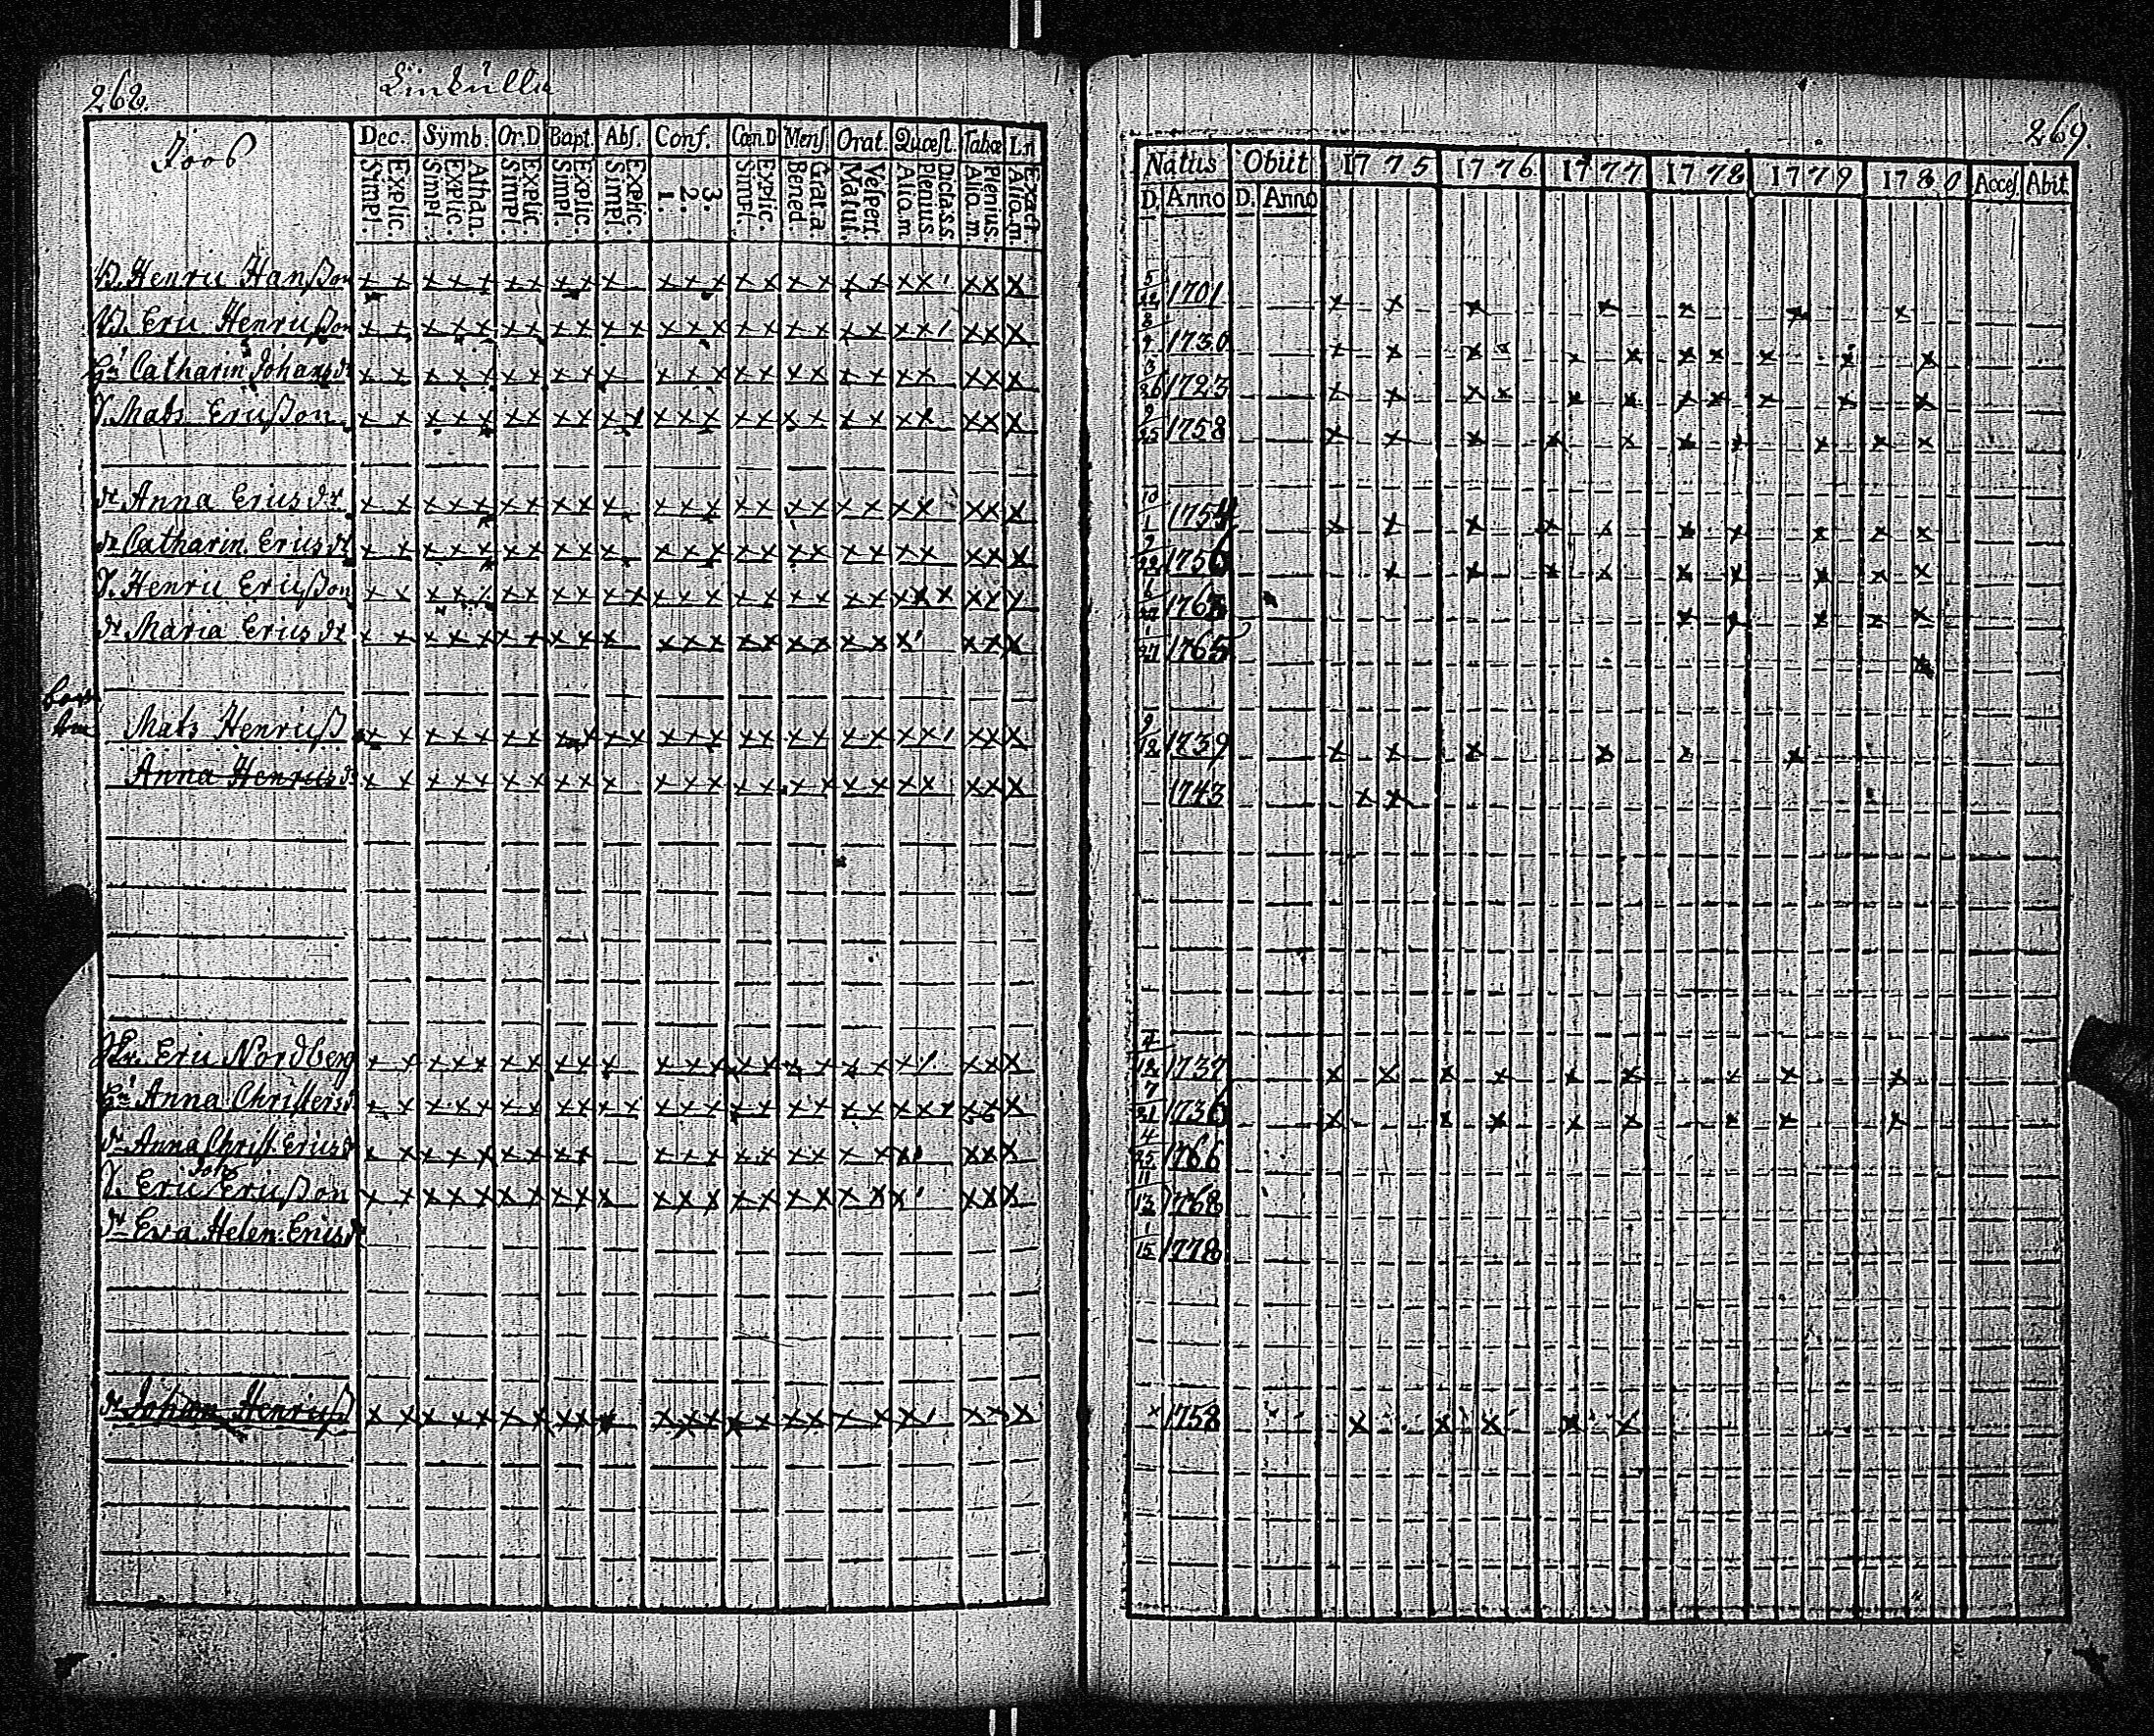 268.
Linkülla
Joos
Dec. Symb. Or.D Bapt. Abſ. Conf. Cœn.D Menſ. Orat. Quæſt. Tabœ L.n
Simpl. Explic. Simpl. Explic. Athan. Simpl. Explic. Simpl. Explic. Simpl. Explic. 1. 2. 3. Simpl. Explic. Bened. Grat.a. Matut. Veſpert. Aliq.m. Plenius Dicta s.s. Aliq.m. Plenius. Aliq.m. Exact
B. Henric Hanßon x x x x x x x x x x x x x x x x x x x x x ' x x x
B. Eric Henricßon x x x x x x x x x x x x x x x x x x x x x x / x x x
Catharin Johans dr x x x x x x x x x x x x x x x x x x x x x x x x
Mats Ericßon x x x x x x x x x x x x x x x x x x x x x x x x x
dr Anna Erics dr x x x x x x x x x x x x x x x x x x x x x x x x
dr Catharin Erics dr x x x x x x x x x x x x x x x x x x x x x x x x
Henric Ericßon x x x x x x x x x x x x x x x x x x x x x x x x x x
dr Maria Erics dr x x x x x x x x x x x x x x x x x x x ' x x x
Mats Henricß x x x x x x x x x x x x x x x x x x x x x x ' x x x
Anna Henrics dr x x x x x x x x x x x x x x x x x x x x x x x x
Eric Nordberg x x x x x x x x x x x x x x x x x x x x / x x x
Anna Christers d x x x x x x x x x x x x x x x x x x x x x x x x x x
dr Anna Christ. Erics d x x x x x x x x x x x x x x x x x x x ' x x x
Joh
Eric Ericßon x x x x x x x x x x x x x x x x x x x x ' x x x
dr Eva Helen. Erics dr
Johan Henricß x x x x x x x x x x x x x x x x x x x x / x x x
269.
Natus Obiit 1775 1776 1777 1778 1779 1780 Acceſ. Abit.
D. Anno D. Anno
1701 x x x x x x x
1730 x x x x x x x x x x x
1723 x x x x x x x x x x x
9/25 1758 x x x x x x x x x x
10/1 1754 x x x x x x x x x x
9/22 1756 x x x x x x x x x
1763 x x x x x
1/27 1765 x
9/12 1739 x x x x x x
1743 x x
4/12 1737 x x x x x x x x x
7/21 1736 x x x x x x x x
4/25 1766
11/13 1768
1/15 1778
x 1758 x x x x x